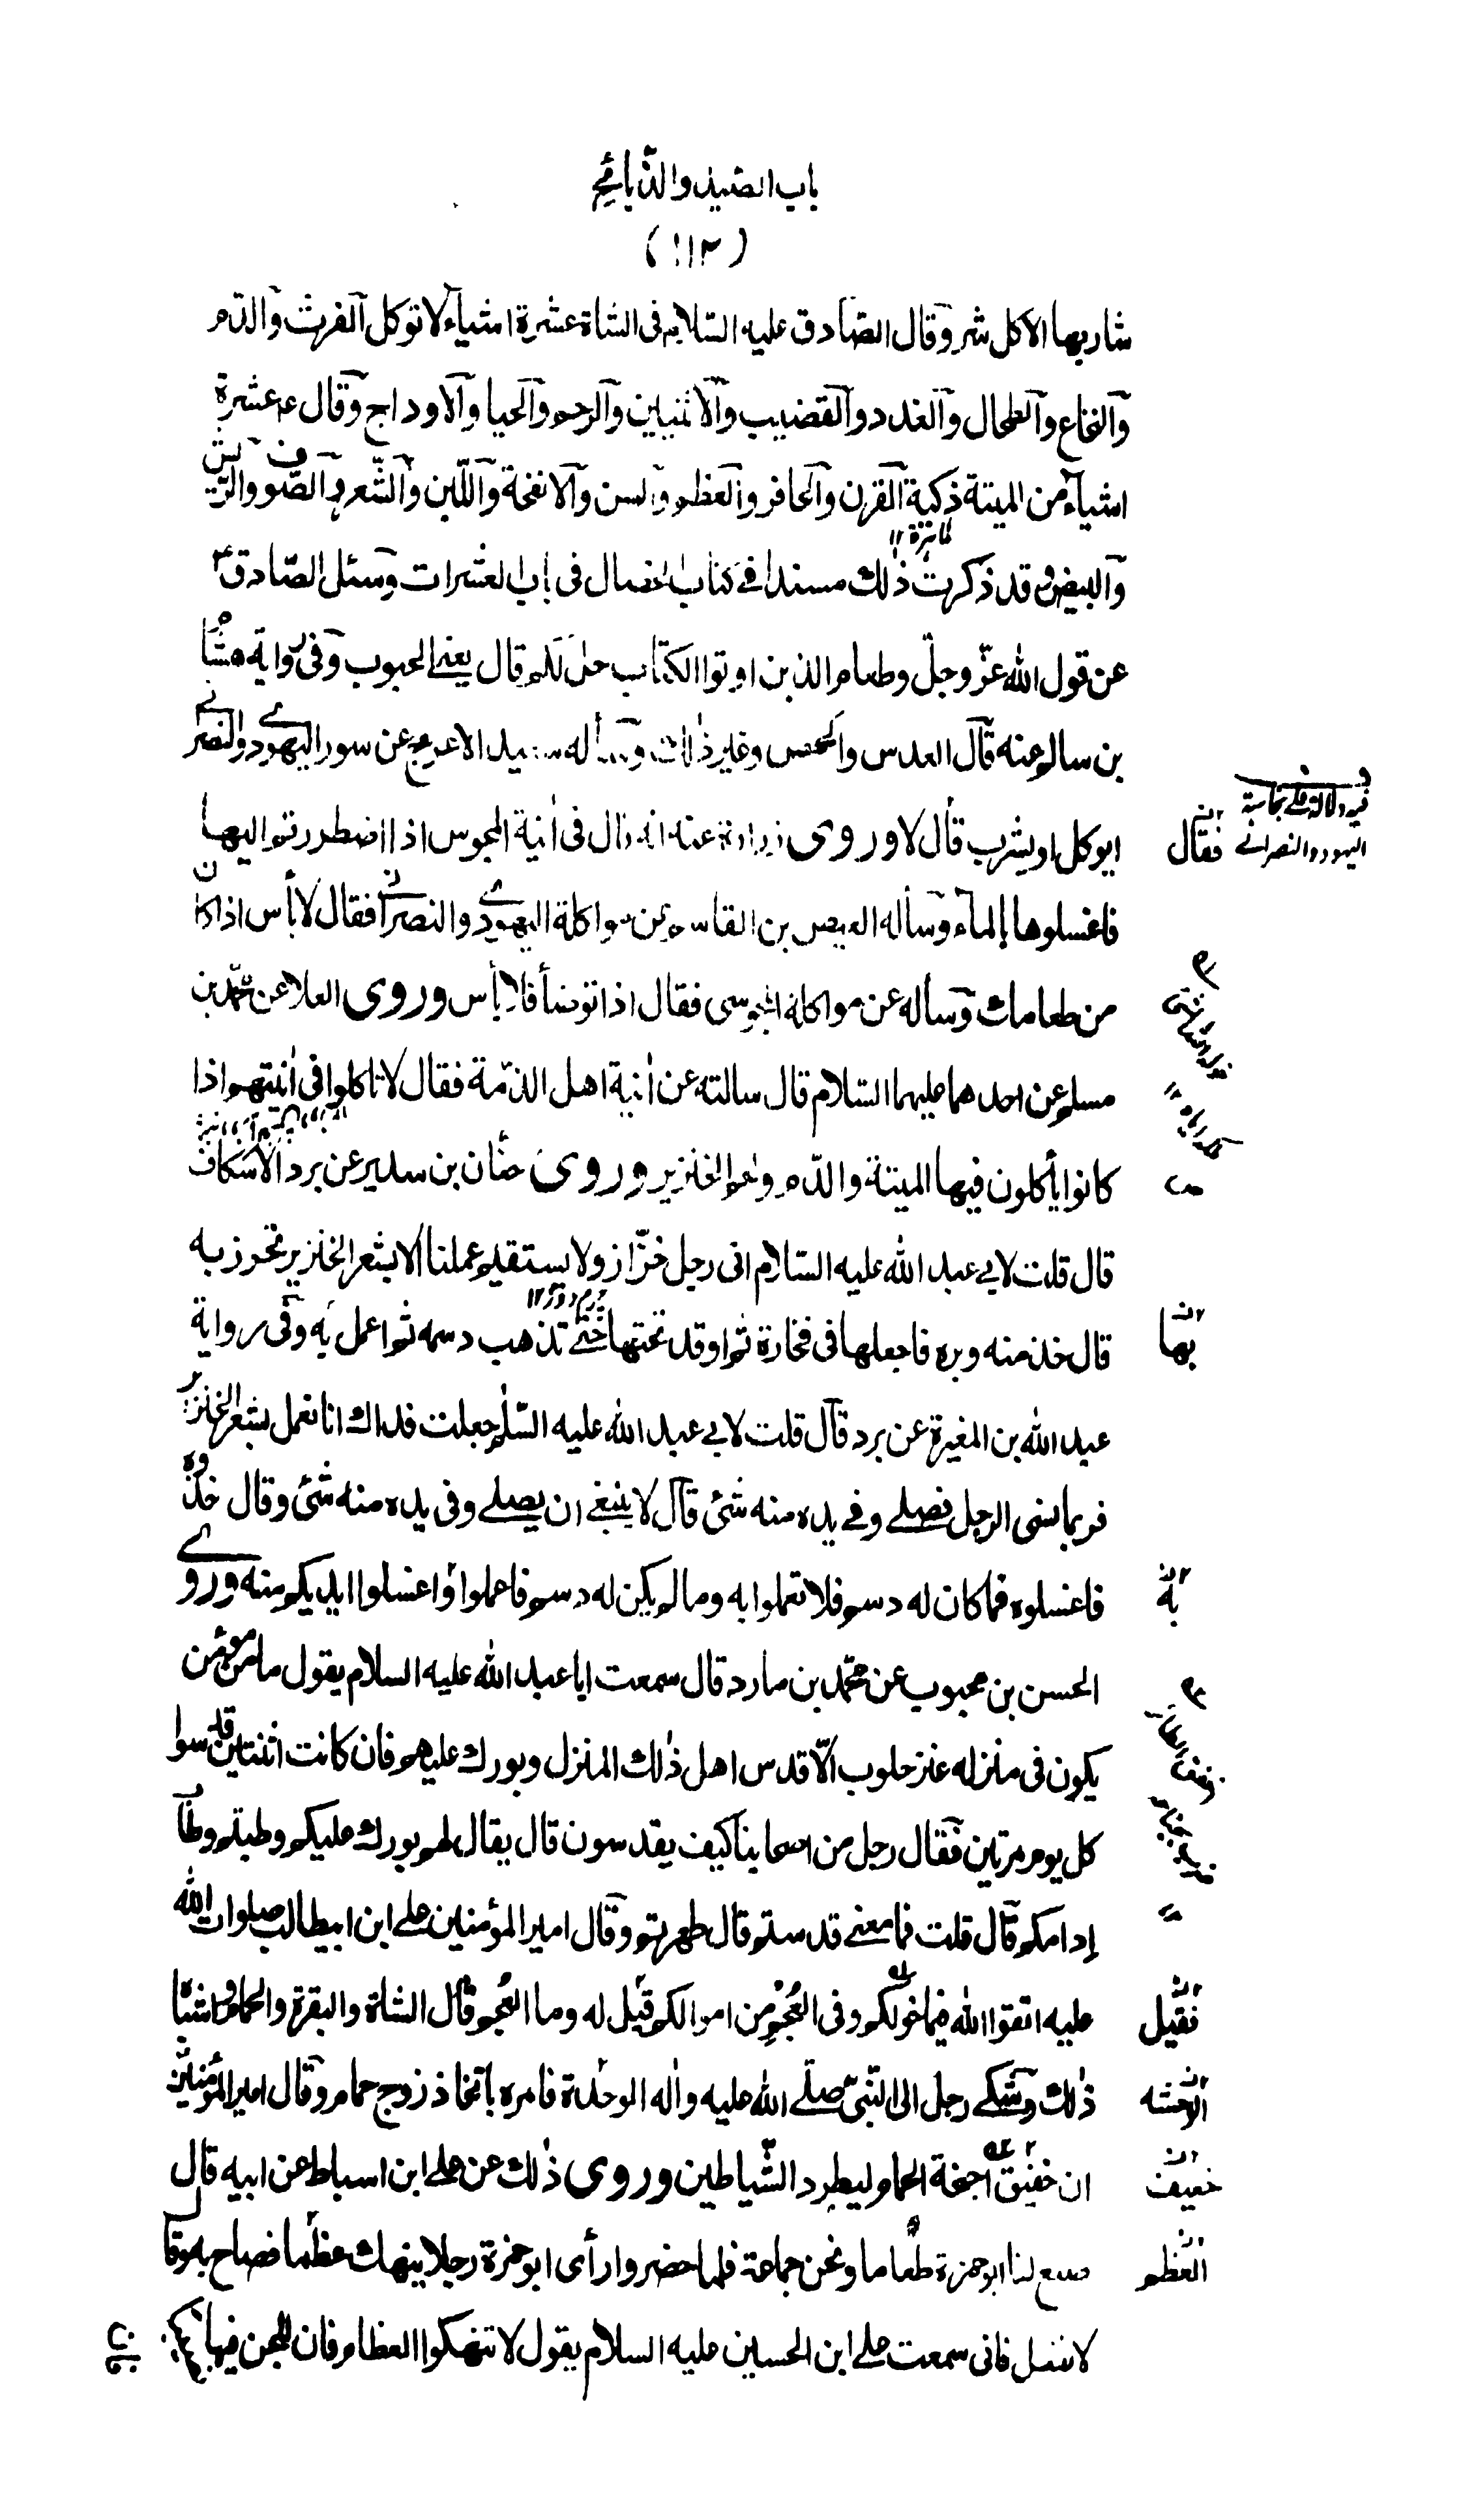 باب الصيد والذبائح
(١١٢)
شاربها الاكل شر وقال الصّادق عليه السّلام فى الشاة عشرة اشياء لا توكل الفرث والدّم
والنخاع والطحال والغدد والقضيب والانثيين والرحم والحيا والاوداج وقال ع عشرة
اشياء من الميتة ذكية القرن والحافر والعظم والسن والانفحة واللّبن والشّعر والصّوف والرّيش
والبيض وقد ذكرت ذٰلك مسندا فى كتاب الخصال فى باب العشرات وسئل الصّادق ع
عن قول الله عزّ وجلّ وطعام الذين اوتوا الكتاب حل لكم قال يعنى الحبوب وفى رواية هشام
بن سالم عنه قال العدس والحمص وغير ذٰلك وسأله سعيد الاعرج عن سور اليهودى والنصرانى
ايوكل او يشرب قال لا وروى زرارة عنه انه قال فى اٰنية المجوس اذا اضطررتم اليها
فاغسلوها بالماء وسأله العيص بن القاسم عن مواكلة اليهودى والنصرانى فقال لا بأس اذا كان
من طعامك وسأله عن مواكلة المجوسى فقال اذا توضأ فلا بأس وروى العلا عن محمّد بن
مسلم عن احدهما عليهما السّلام قال سالته عن اٰنية اهل الذمّة فقال لا تاكلوا فى اٰنيتهم اذا
كانوا يأكلون فيها الميتة والدّم ولحم الخنزير وروى حنان بن سدير عن برد الاسكاف
قال قلت لابى عبد الله عليه السّلام انى رجل خرّاز ولا يستقيم عملنا الا بشعر الخنزير نخرز به
قال خذ منه وبره فاجعلها فى فخارة ثم اوقد تحتها حتى تذهب دسمه ثم اعمل به وفى رواية
عبد الله بن المغيرة عن برد قال قلت لابى عبد الله عليه السّلم جعلت فداك انا نعمل بشعر الخنزير
فربما نسى الرجل فصلى وفى يده منه شئ قال لا ينبغى ان يصلى وفى يده منه شئ وقال خذوه
فاغسلوه فما كان له دسم فلا تعملوا به وما لم يكن له دسم فاعملوا واغسلوا ايديكم منه وروى
الحسن بن محبوب عن محمّد بن مارد قال سمعت ابا عبد الله عليه السلام يقول ما من مؤمن
يكون فى منزله عنز حلوب الّا قدس اهل ذٰلك المنزل وبورك عليهم فان كانت اثنتين قدسوا
كل يوم مرتين فقال رجل من اصحابنا كيف يقدسون قال يقال لهم بورك عليكم وطبتم وطاب
ادامكم قال قلت فما معنى قدستم قال طهرتم وقال امير المؤمنين على ابن ابيطالب صلوات الله
عليه اتقوا الله فيما خولكم وفى العُجْمِ من اموالكم قيل له وما العجم قال الشاة والبقرة والحمام واشباه
ذٰلك وشكى رجل الى النّبىّ صلّى الله عليه واٰله الوحدة فامره باتخاذ زوج حمام وقال امير المؤمنين
ان حفيق اجنحة الحمام ليطرد الشّياطين وروى ذٰلك عن على ابن اسباط عن ابيه قال
صنع لنا ابو حمزة طعاما ونحن جماعة فلما حضروا رأى ابو حمزة رجلا ينهك عظما فصاح به وقال
لا تفعل فانى سمعت على ابن الحسين عليه السلام يقول لا تنهكوا العظام فان للجن فيها
فيه دلالة على نجاسة
اليهود والنصرانى
فقال
بها
به
فقيل
الوحشة
حفيف
العظم